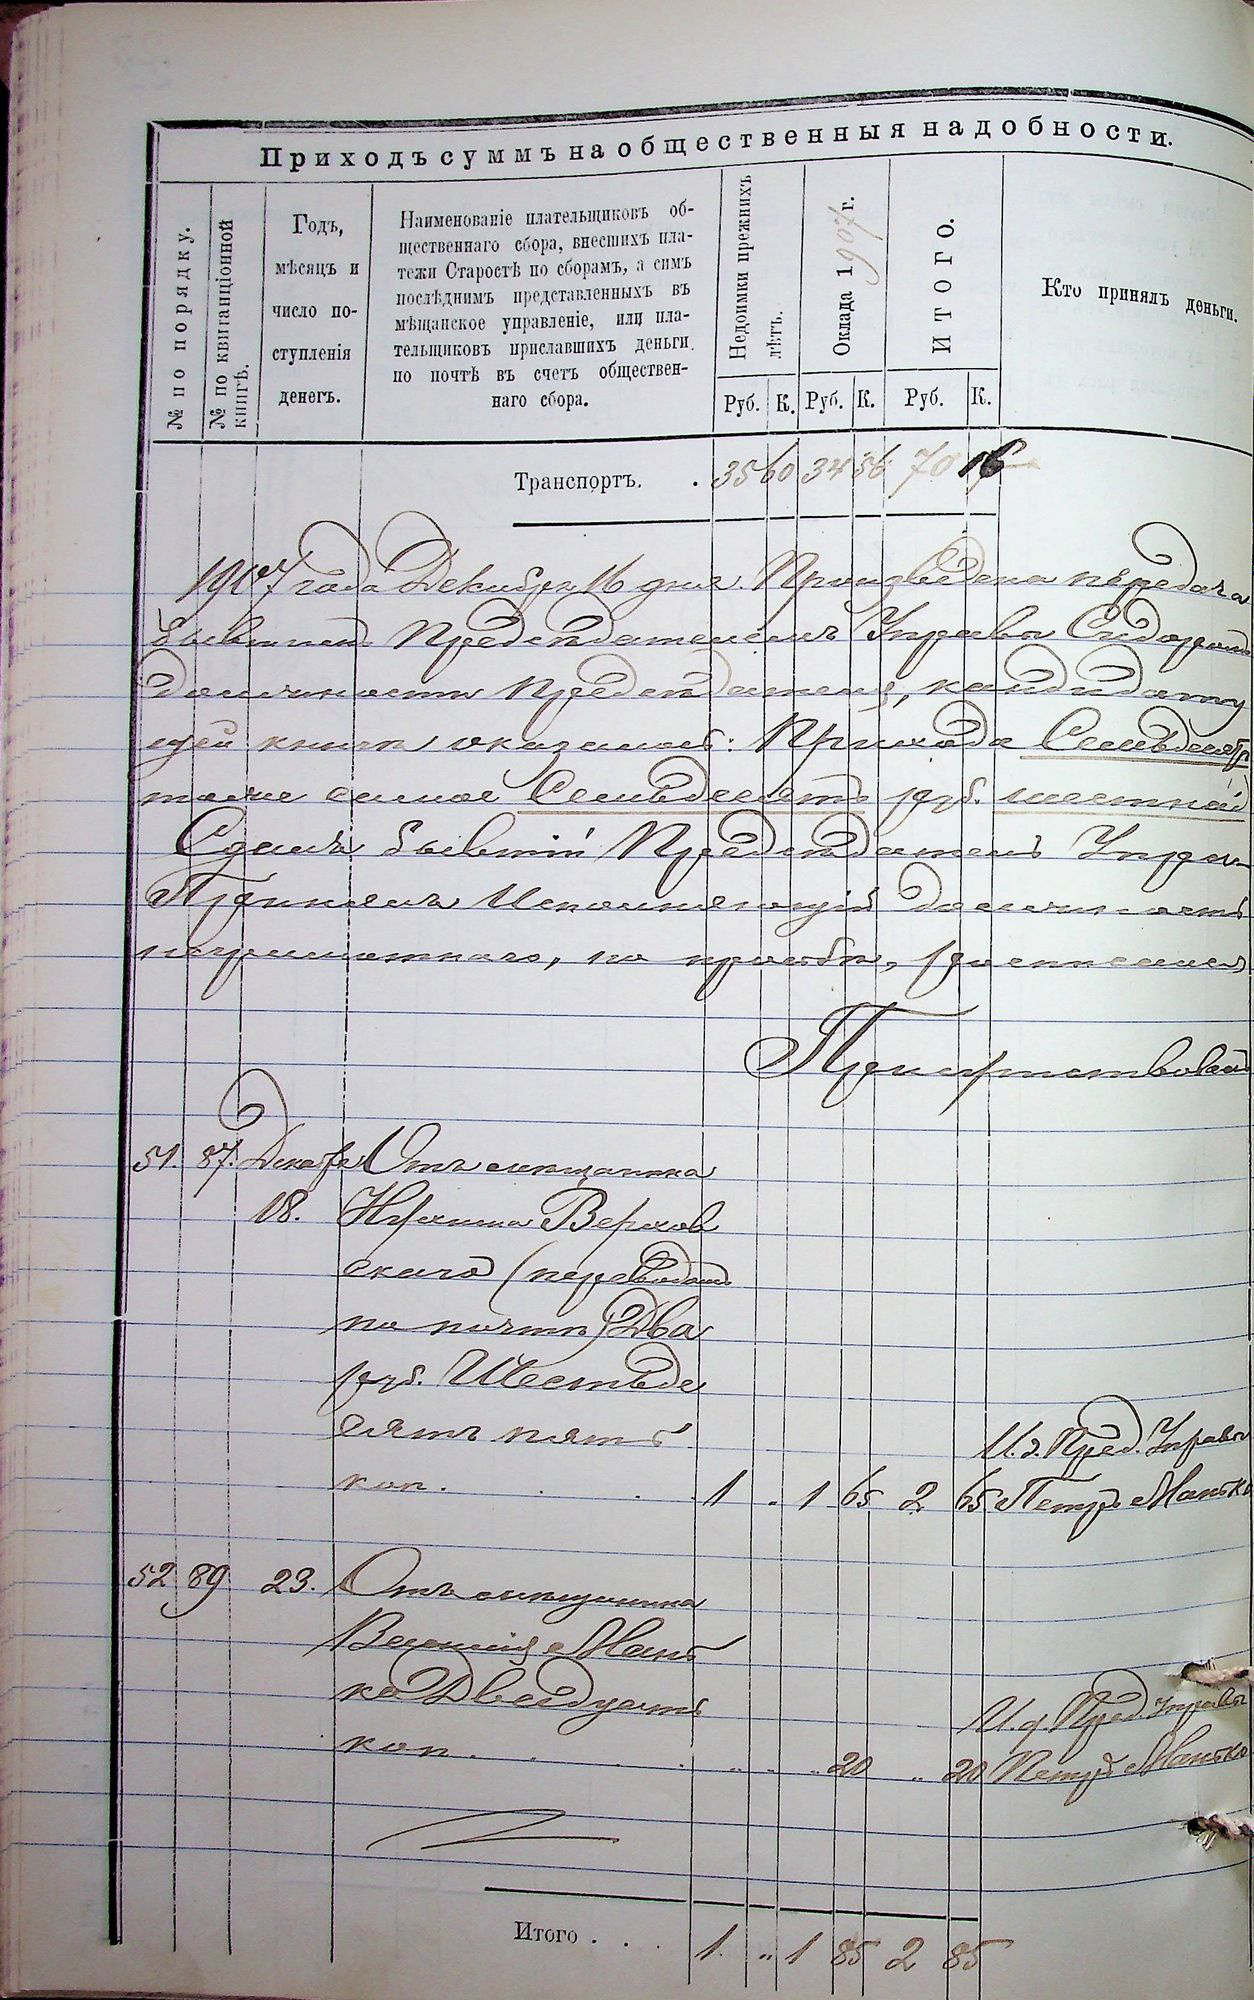 Приходъ суммъ на общественныя надобности.
№ по порядку.
№ по квитанціонной
книгѣ.
Годъ,
мѣсяцъ и
число по-
ступленія
денегъ.
Наименованіе плательщиковъ об-
щественнаго сбора, внесшихъ пла-
тежи Старостѣ по сборамъ, а симъ
послѣднимъ представленныхъ въ
мѣщанское управленіе, или пла-
тельщиковъ приславшихъ деньги
по почтѣ въ счетъ обществен-
наго сбора.
Недоимки прежнихъ
лѣтъ.
Оклада 1907 г.
ИТОГО.
Кто принялъ деньги.
Руб. К. Руб. К. Руб. К.
Транспортъ. . 35 60 34 56 70 16
1907 года Декабря 16 дня. Произведена передача
бывшимъ Предсѣдателемъ Управы Сидоромъ
должности Предсѣдателя, кандидату
сей книги оказалось: Прихода Семьдесятъ
тоже самое Семьдесятъ руб. шестнад
Сдалъ бывшій Предсѣдатель Управы
Принялъ Исполняющій должность
неграмотнаго, по просьбѣ, росписался
Присутствовалъ
51. 87. Декабря Отъ мѣщанина
18. Нухима Верхов
скаго (переводомъ
по почтѣ) Два
руб. Шестьде
сятъ пять
И. д. Пред. Управы
коп. . . . . 1 „ 1 65 2 65 Петръ Манько
52 89 23. Отъ мѣщанина
Василія Мань
ко Двадцать
И. д. Пред. Управы
коп. . . . „ „ „ 20 „ 20 Петръ Манько
Итого . . . 1 „ 1 85 2 85